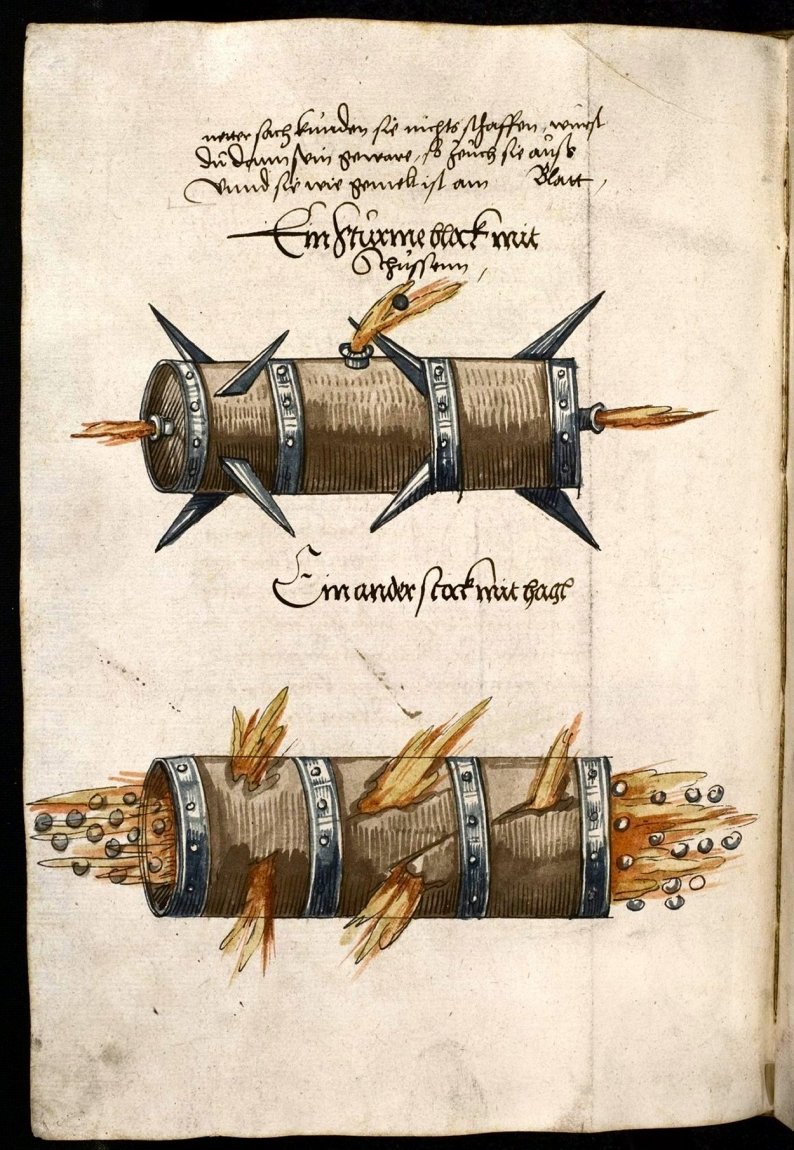 sach kunden sie nichts schaffen, würst
du dann sein geware, so zeuch sie auss
Vnnd sie wie gemelt ist am Blatt,
Ein Stürmeblock mit
Schüssenn,
Ein ander stock mit hagl